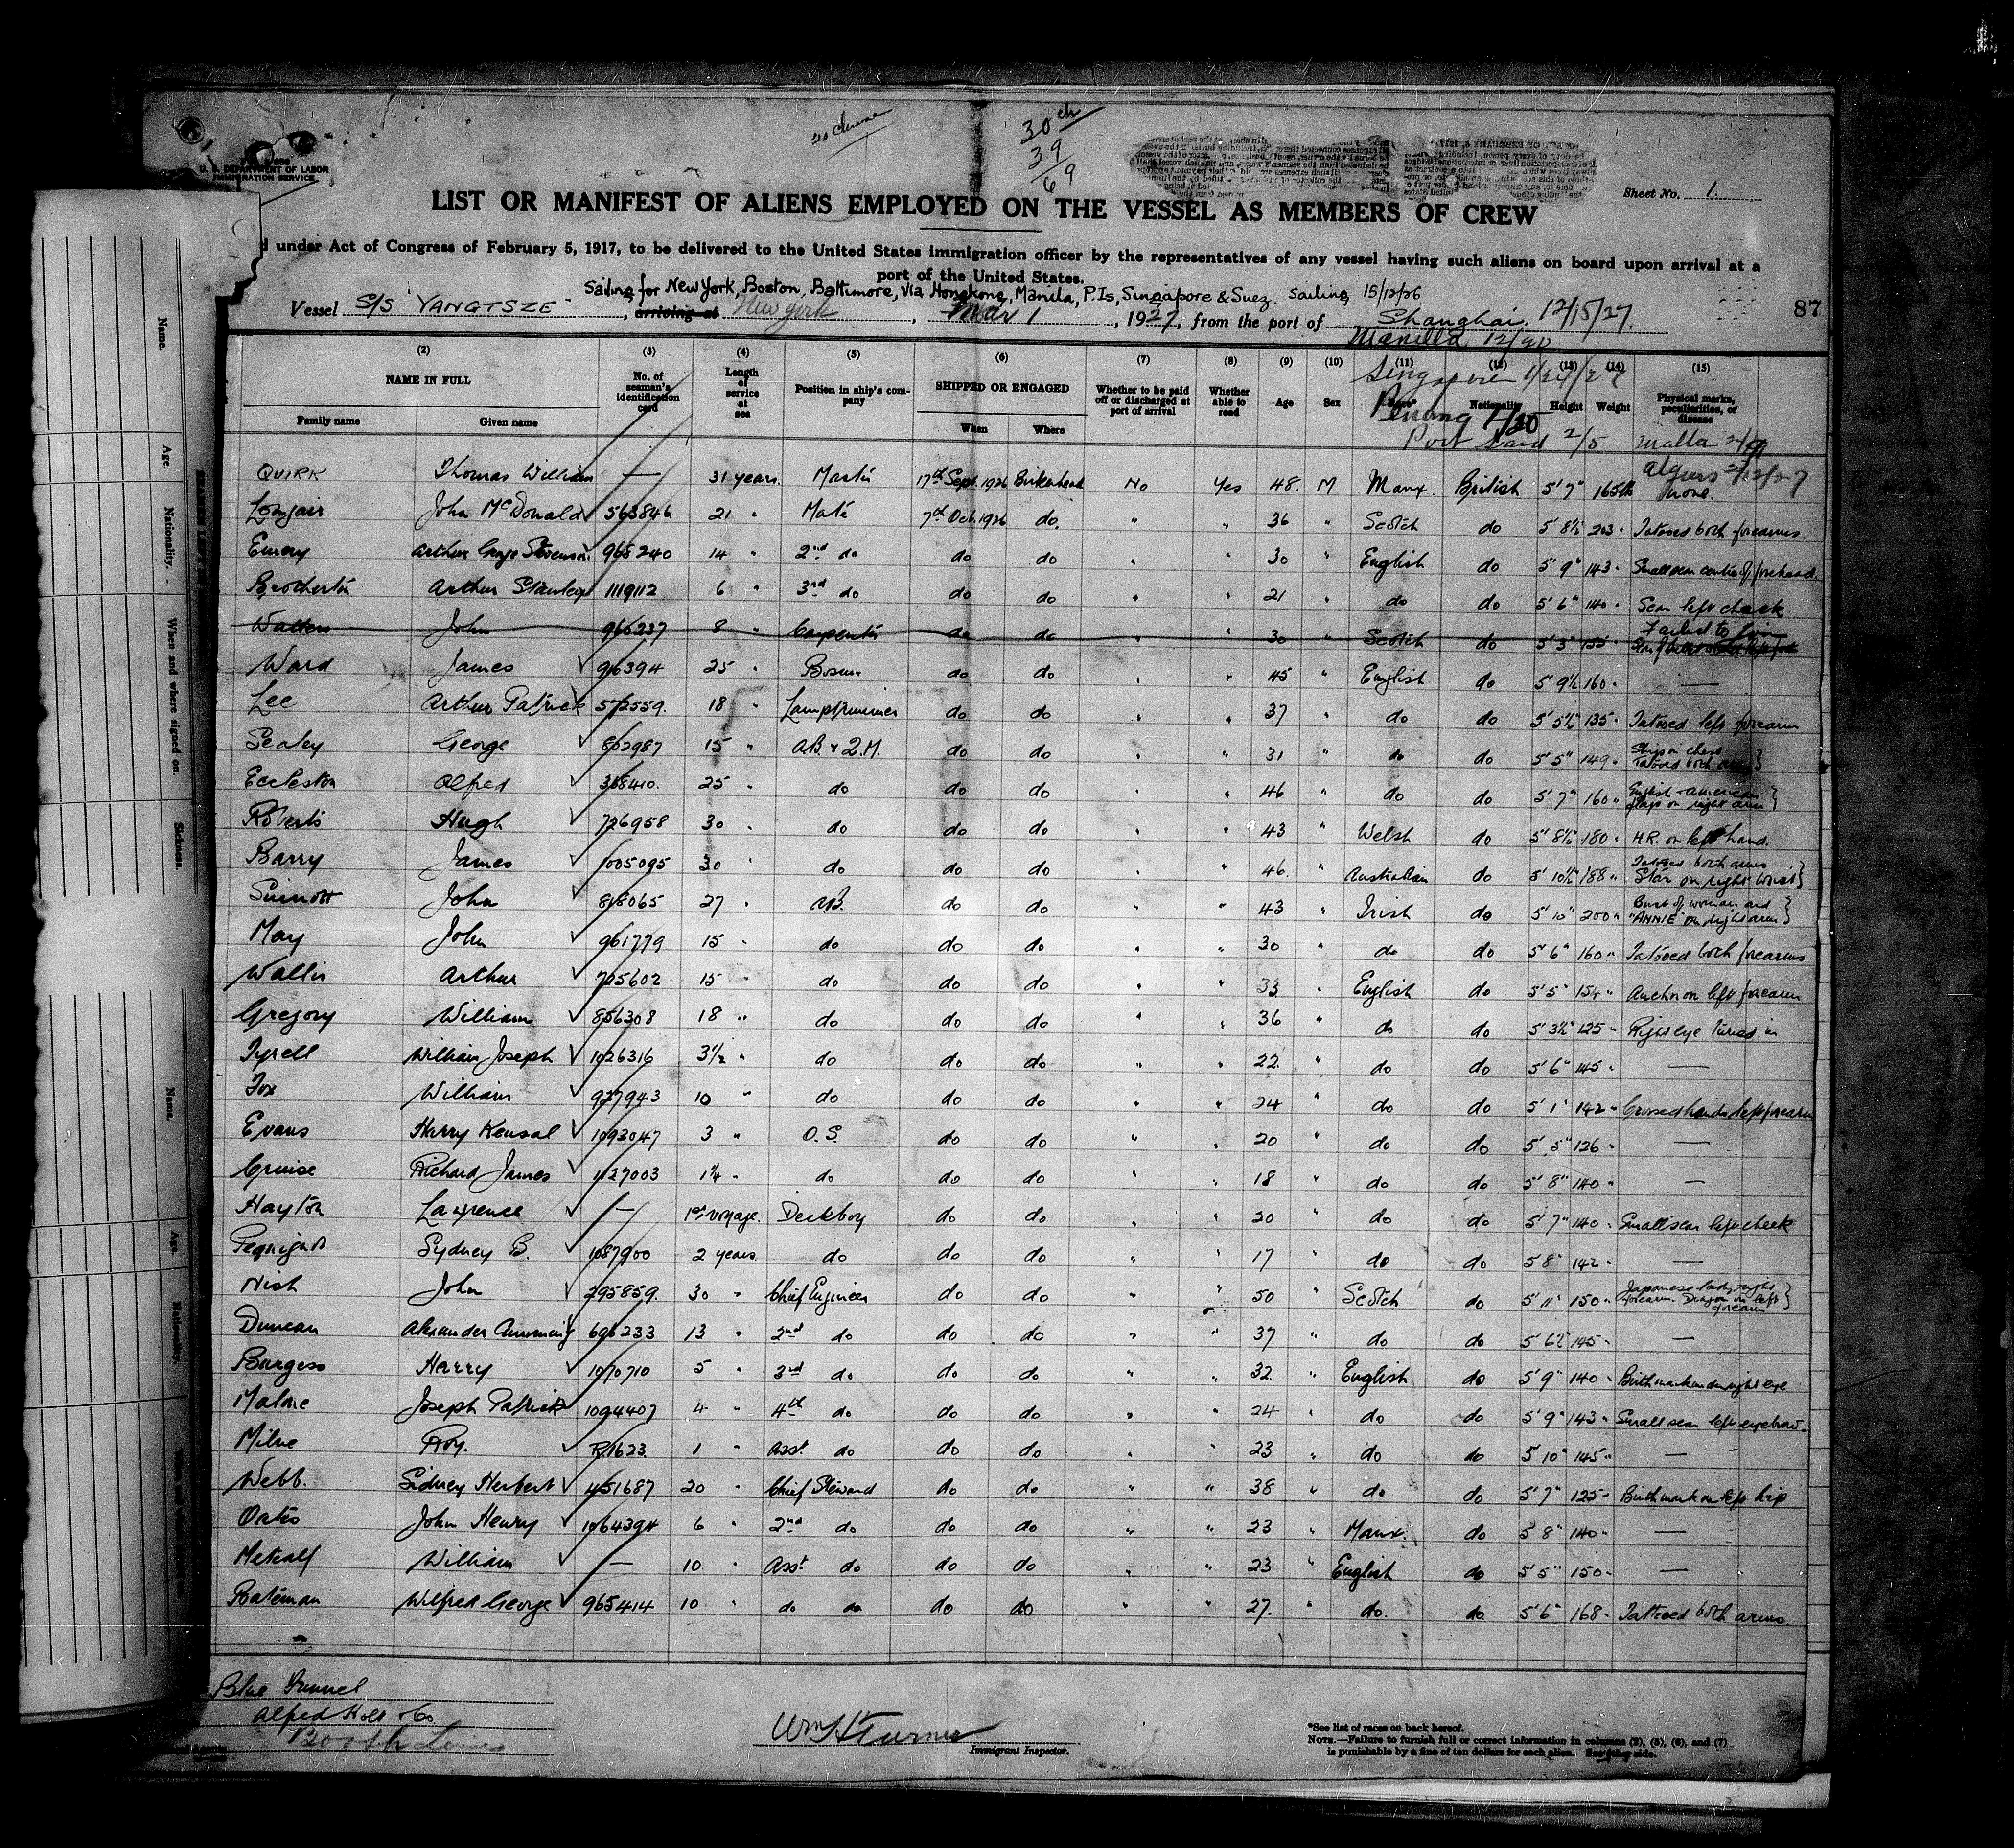 20 chinese
30 ch
39
69
U. S. DEPARTMENT OF LABOR
IMMIGRATION SERVICE
Sheet No. 1.
LIST OR MANIFEST OF ALIENS EMPLOYED ON THE VESSEL AS MEMBERS OF CREW
under Act of Congress of February 5, 1917, to be delivered to the United States immigration officer by the representatives of any vessel having such aliens on board upon arrival at a
port of the United States.
Sailing for New York, Boston, Baltimore, Via Hongkong, Manila, P.Is, Singapore & Suez. Sailing 15/12/26
Vessel S/S "YANGTSZE", arriving at New York, Mar 1, 1927, from the port of Shanghai 12/15/27
87
Manilla 12/20
Singapore 1/24/27
Penang 1/20
Port Said 2/5 Malta 2/9
Algiers 2/12/27
(2) (3) (4) (5) (6) (7) (8) (9) (10) (11) (12) (13) (14) (15)
NAME IN FULL No. of seaman's identification card Length of service at sea Position in ship's company SHIPPED OR ENGAGED Whether to be paid off or discharged at port of arrival Whether able to read Age Sex Nationality Height Weight Physical marks, peculiarities, or disease
Family name Given name When Where
QUIRK Thomas William — 31 years. Master 17th Sept. 1926 Birkenhead No Yes 48. M Manx. British 5' 7" 165 lb none.
Longair John McDonald 563846 21 " Mate 7th Oct. 1926 do. " " 36 " Scotch do 5' 8½ 203 " Tatooed both forearms.
Emery Arthur George Stevenson 965240 14 " 2nd do do do " " 30 " English do 5' 9" 143 " Small scar centre of forehead.
Brotherton Arthur Stanley 1119112 6 " 3rd do do do " " 21 " do do 5' 6" 140 " Scar left cheek
Walters John 965237 8 " Carpenter do do " " 30 " Scotch do 5' 3" 155 Failed to join
Ward James 916394 25 " Bosun do do " " 45 " English do 5' 9½ 160 " —
Lee Arthur Patrick 572559. 18 " Lamptrimmer do do " " 37 " do do 5' 5½" 135 " Tatooed left forearm
Sealey George 802987 15 " A.B. & Q.M. do do " " 31 " do do 5' 5" 149 " Ship on chest Tatooed both arms
Eccleston Alfred 368410. 25 " do do do " " 46 " do do 5' 7" 160 " English-American flags on right arm
Roberts Hugh 726958 30 " do do do " " 43 " Welsh do 5' 8½" 180 " H.R. on left hand.
Barry James 1005095 30 " do do do " " 46. " Australian do 5' 10½" 188 " Tatooed both arms Star on right wrist
Sinnott John 818065 27 " A.B. do do " " 43 " Irish do 5' 10" 200 " Bust of woman and "ANNIE" on right arm
May John 961779 15 " do do do " " 30 " do do 5' 6" 160 " Tatooed both forearms
Wallis Arthur 725602 15 " do do do " " 33 " English do 5' 5" 154 " Anchor on left forearm
Gregory William 856308 18 " do do do " " 36 " do do 5' 3½" 125 " Right eye turned in
Tyrell William Joseph 1026316 3½ " do do do " " 22 " do do 5' 6" 145 " —
Fox William 927943 10 " do do do " " 24 " do do 5' 1" 142 " Crossed hands left forearm
Evans Harry Kensal 1093047 3 " O.S. do do " " 20 " do do 5' 5" 126 " —
Cruise Richard James 1127003 1¼ " do do do " " 18 " do do 5' 8" 140 " —
Hayton Lawrence — 1st voyage. Deckboy do do " " 20 " do do 5' 7" 140 " Small scar left cheek
Pequignot Sydney B. 1087900 2 years. do do do " " 17 " do do 5' 8" 142 " —
Nish John 295859. 30 " Chief Engineer do do " " 50 " Scotch do 5' 11" 150 " Japanese lady right forearm. Dragon on left forearm
Duncan Alexander 696233 13 " 2nd do do do " " 37 " do do 5' 6½" 145 " —
Burgess Harry 1070710 5 " 3rd do do do " " 32 " English do 5' 9" 140 " Birthmark under right eye
Malone Joseph Patrick 1094407 4 " 4th do do do " " 24 " do do 5' 9" 143 " Small scar left eyebrow.
Milne Roy. R1623. 1 " Asst. do do do " " 23 " do do 5' 10" 145 " —
Webb. Sidney Herbert 451687 20 " Chief Steward do do " " 38 " do do 5' 7" 125 " Birthmark on left hip
Oates John Henry 1064394 6 " 2nd do do do " " 23 " Manx. do 5' 8" 140 " —
Metcalf William — 10 " Asst. do do do " " 23 " English do 5' 5" 150 " —
Bateman Wilfred George 965414 10 " do do do do " " 27. " do. do 5' 6" 168 " Tattooed both arms.
Blue Funnel
Alfred Holt & Co
Booth Lines
Wm H Turner
Immigrant Inspector.
*See list of races on back hereof.
NOTE.—Failure to furnish full or correct information in columns (2), (5), (6), and (7)
is punishable by a fine of ten dollars for each alien. See other side.
Name.
Age.
Nationality.
When and where signed on.
Sickness.
Name.
Age.
Nationality.